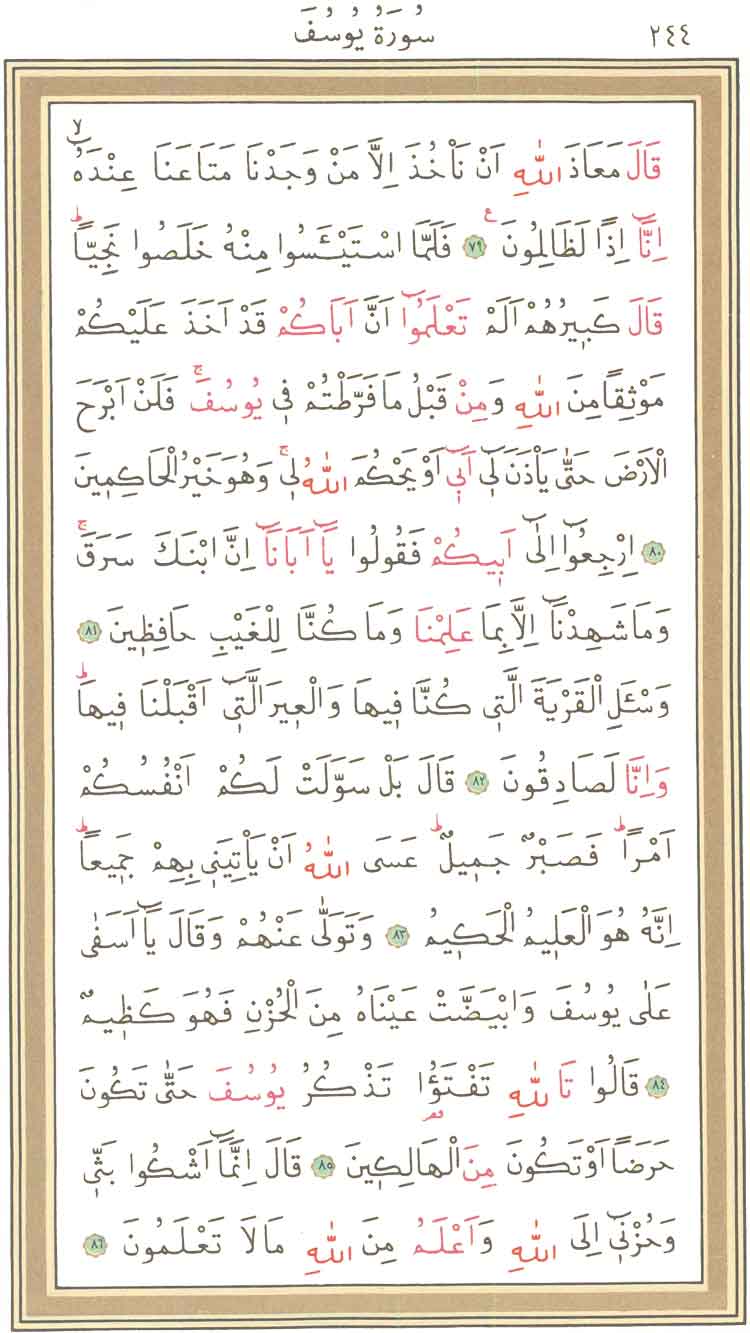 ٢٤٤ سُورَةُ يُوسُفَ
قَالَ مَعَاذَ اللّٰهِ اَنْ نَأْخُذَ اِلَّا مَنْ وَجَدْنَا مَتَاعَنَا عِنْدَهُٓۙ
اِنَّٓا اِذًا لَظَالِمُونَ۟ ﴿٧٩﴾ فَلَمَّا اسْتَيْـَٔسُوا مِنْهُ خَلَصُوا نَجِيًّاۜ
قَالَ كَبِيرُهُمْ اَلَمْ تَعْلَمُٓوا اَنَّ اَبَاكُمْ قَدْ اَخَذَ عَلَيْكُمْ
مَوْثِقًا مِنَ اللّٰهِ وَمِنْ قَبْلُ مَا فَرَّطْتُمْ فِي يُوسُفَۚ فَلَنْ اَبْرَحَ
الْاَرْضَ حَتّٰى يَأْذَنَ لِٓي اَبِٓي اَوْ يَحْكُمَ اللّٰهُ لِيۚ وَهُوَ خَيْرُ الْحَاكِمِينَ
﴿٨٠﴾ اِرْجِعُٓوا اِلٰٓى اَبِيكُمْ فَقُولُوا يَٓا اَبَانَٓا اِنَّ ابْنَكَ سَرَقَۚ
وَمَا شَهِدْنَٓا اِلَّا بِمَا عَلِمْنَا وَمَا كُنَّا لِلْغَيْبِ حَافِظِينَ ﴿٨١﴾
وَسْـَٔلِ الْقَرْيَةَ الَّتِي كُنَّا فِيهَا وَالْعِيرَ الَّتِٓي اَقْبَلْنَا فِيهَاۜ
وَاِنَّا لَصَادِقُونَ ﴿٨٢﴾ قَالَ بَلْ سَوَّلَتْ لَكُمْ اَنْفُسُكُمْ
اَمْرًاۜ فَصَبْرٌ جَمِيلٌۜ عَسَى اللّٰهُ اَنْ يَأْتِيَنِي بِهِمْ جَمِيعًاۜ
اِنَّهُ هُوَ الْعَلِيمُ الْحَكِيمُ ﴿٨٣﴾ وَتَوَلّٰى عَنْهُمْ وَقَالَ يَٓا اَسَفٰى
عَلٰى يُوسُفَ وَابْيَضَّتْ عَيْنَاهُ مِنَ الْحُزْنِ فَهُوَ كَظِيمٌ
﴿٨٤﴾ قَالُوا تَاللّٰهِ تَفْتَؤُ۬ا تَذْكُرُ يُوسُفَ حَتّٰى تَكُونَ
حَرَضًا اَوْ تَكُونَ مِنَ الْهَالِكِينَ ﴿٨٥﴾ قَالَ اِنَّمَٓا اَشْكُوا بَثِّي
وَحُزْنِٓي اِلَى اللّٰهِ وَاَعْلَمُ مِنَ اللّٰهِ مَا لَا تَعْلَمُونَ ﴿٨٦﴾